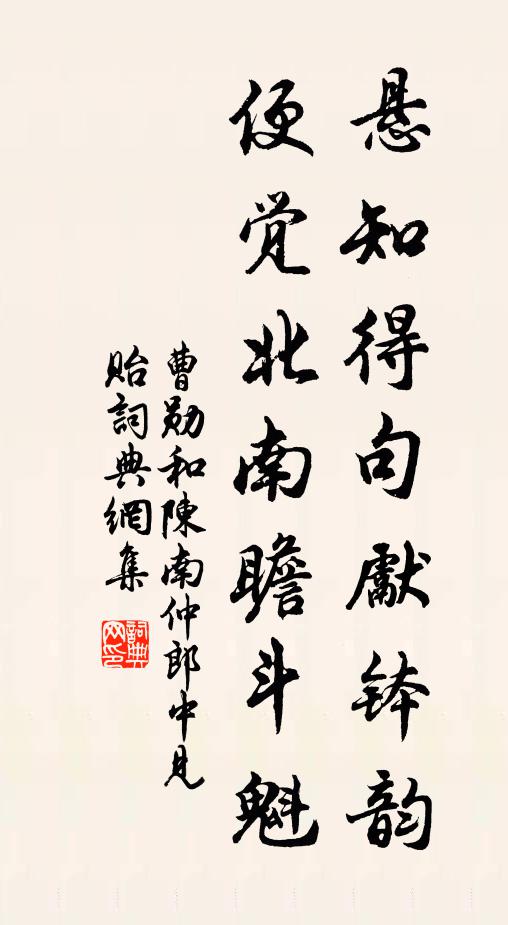 悬知得句獻钵韵
便觉北南瞻斗魁
曹勋和陳南仲郎中見
貽詞典網集
詞典网印